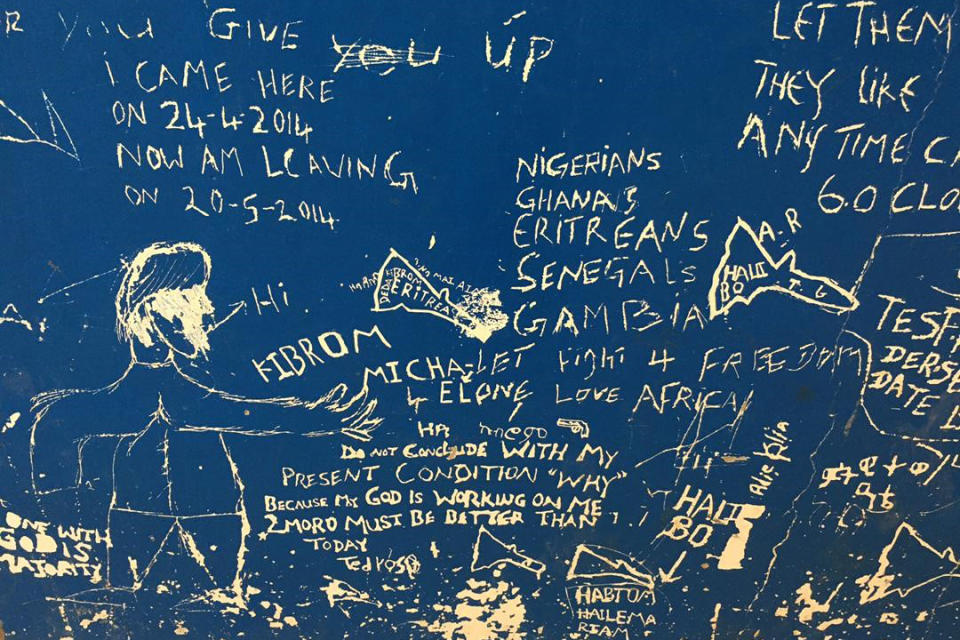 GIVE YOU ÚP
I CAME HERE
ON 24-4-2014
NOW AM LEAVING
ON 20-5-2014
LET THEM
THEY LIKE
ANY TIME
6.0 CLO
NIGERIANS
GHANA'S
ERITREANS
SENEGALS
GAMBIA
LET FIGHT 4 FREEDOM
4 ELONE LOVE AFRICA
Hi
KIBROM
MICHA
KIBROM
ERITREA
A-R
HALI
BO
TESF
DATE
DO NOT Conclude WITH MY
PRESENT CONDITION "WHY"
BECAUSE MY GOD IS WORKING ON ME
2MORO MUST BE BETTER THAN
TODAY
Tedros
HALI
BO
HABTOM
HAILEMA
RIAM
ONE WITH
GOD IS
MAJORITY